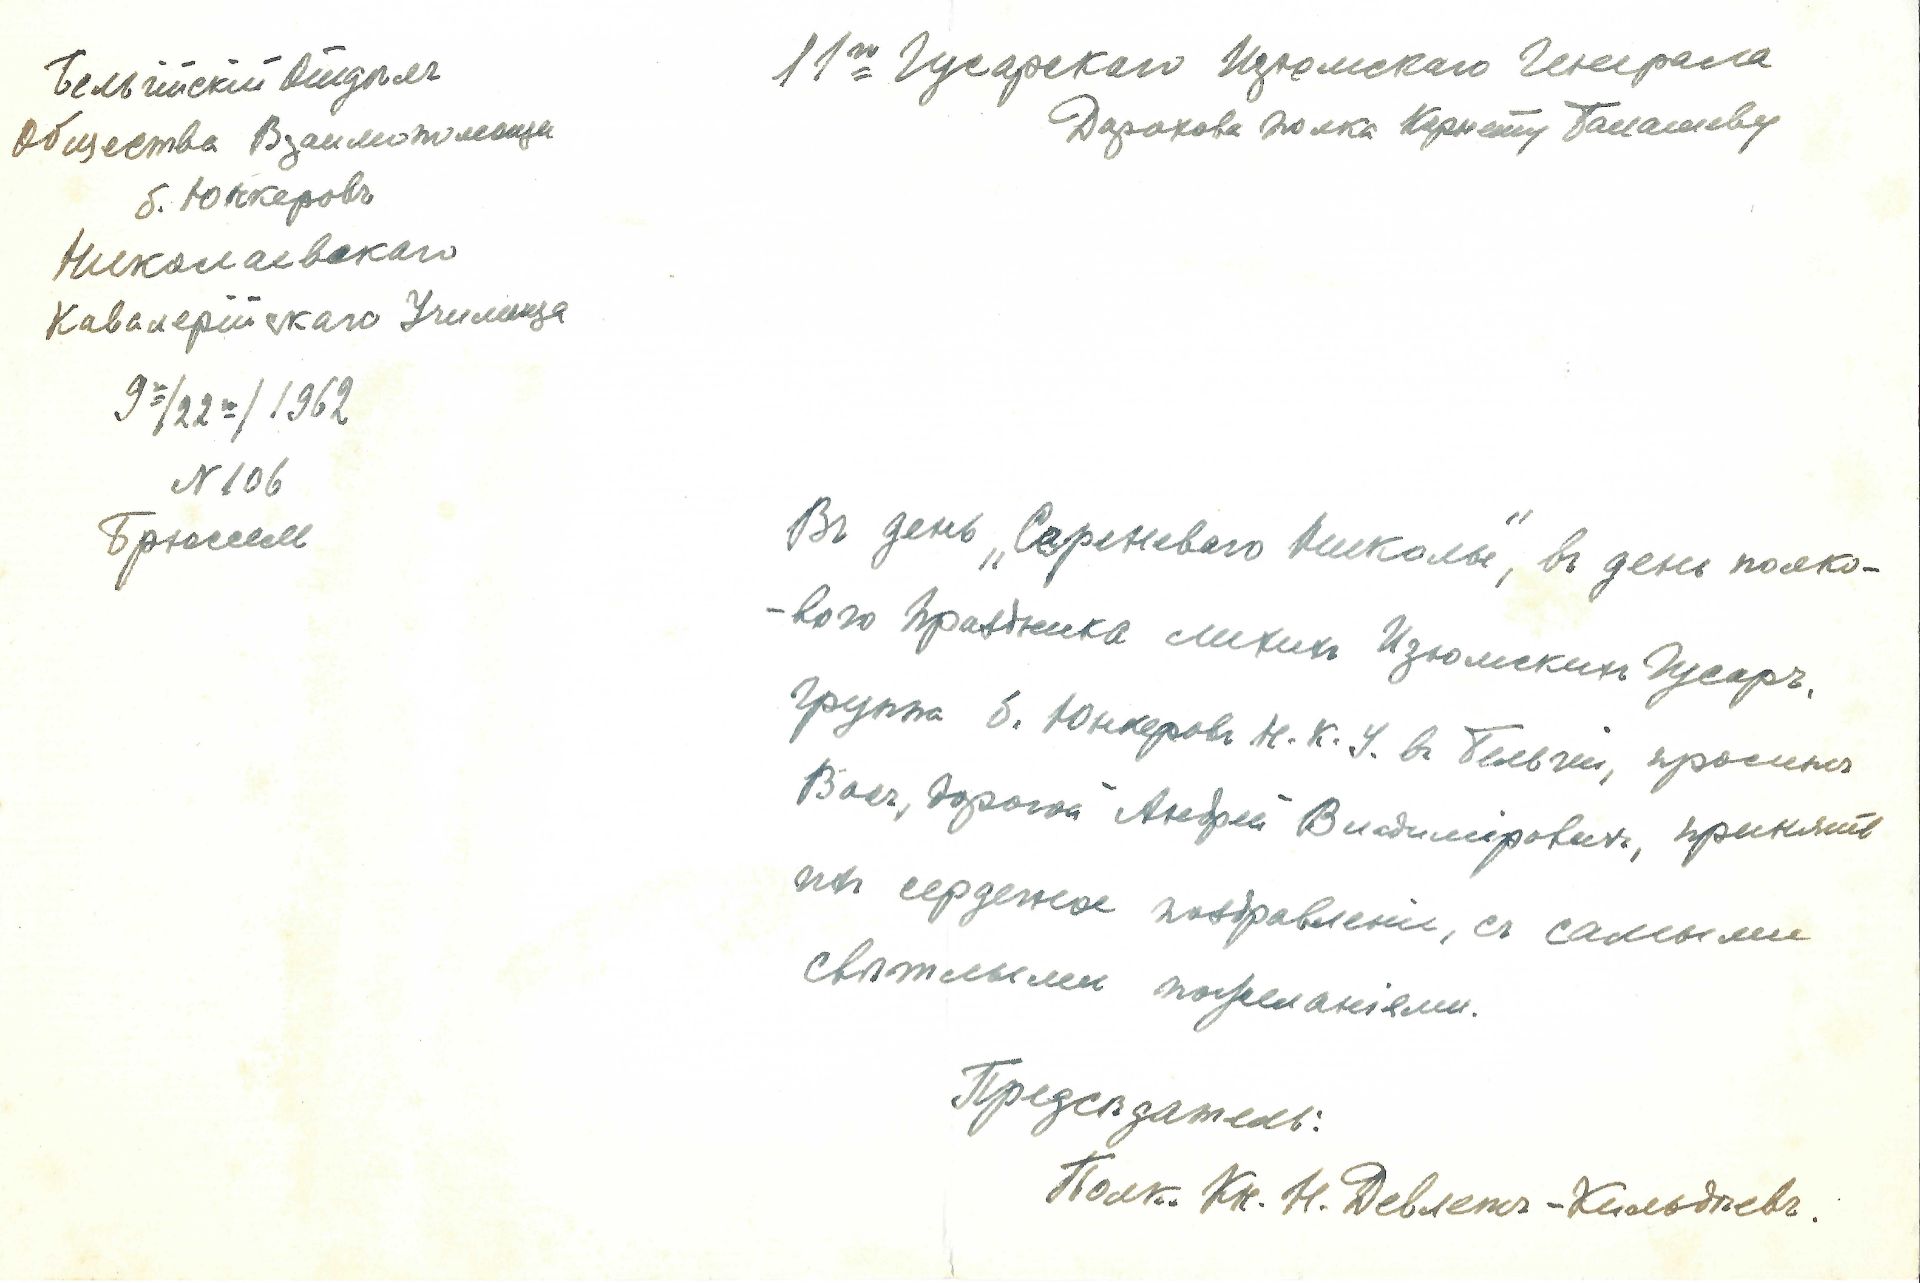 Бельгiйскiй Отдѣлъ
Общества Взаимопомощи
б. Юнкеровъ
Николаевскаго
Кавалерiйскаго Училища
9го/22го/1962
N 106
Брюссель
11го Гусарскаго Изюмскаго Генерала
Дорохова полка Корнету Балашеву
Въ день „Сереневаго Николы", въ день полко-
-вого праздника лихихъ Изюмскихъ Гусаръ,
группа б. Юнкеровъ Н. К. У. въ Бельгiи, проситъ
Васъ, дорогой Андрей Владимiровичъ, принять
ихъ сердечное поздравленiе, съ самыми
свѣтлыми пожеланiями.
Предсѣдатель:
Полк. Кн. Н. Девлетъ-Кильдѣевъ.